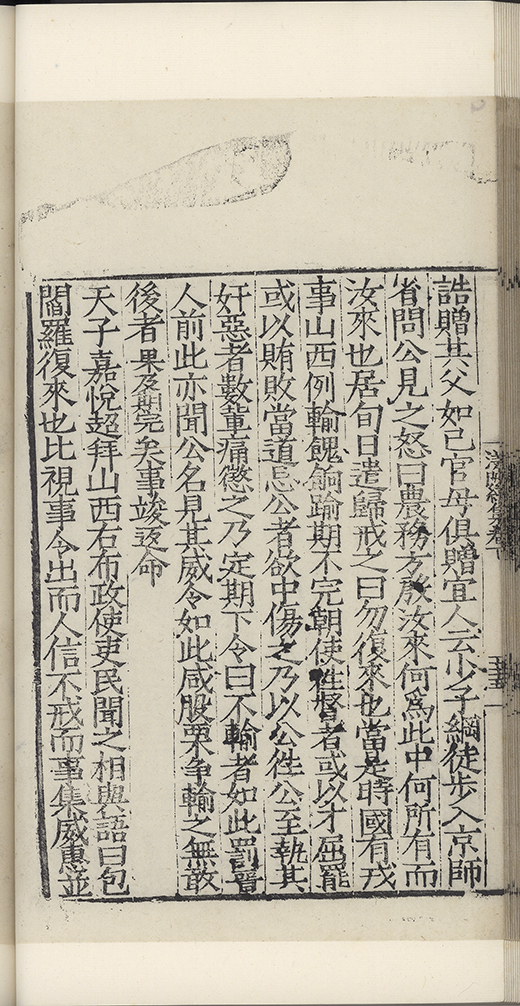 誥贈其父如己官母俱贈宜人云少子綱徒步入京師
省問公見之怒曰農務方殷汝來何爲此中何所有而
汝來也居旬日遣歸戒之曰勿復來也當是時國有戎
事山西例輸餽餉踰期不完朝使徃督者或以才屈罷
或以賄敗當道忌公者欲中傷之乃以公徃公至執其
奸惡者數輩痛懲之乃定期下令曰不輸者如此罰晉
人前此亦聞公名見其威令如此咸股栗争輸之無敢
後者果及期完矣事竣返命
天子嘉悅超拜山西右布政使吏民聞之相與語曰包
閻羅復來也比視事令出而人信不戒而事集威惠並